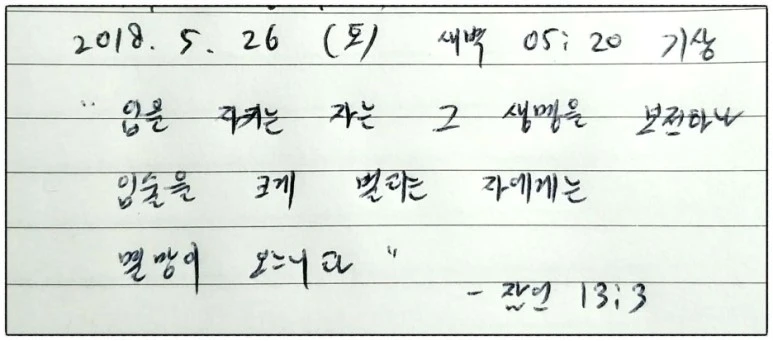 2018. 5. 26 (토) 새벽 05:20 기상
"입을 지키는 자는 그 생명을 보전하나
입술을 크게 벌리는 자에게는
멸망이 오느니라"
- 잠언 13:3